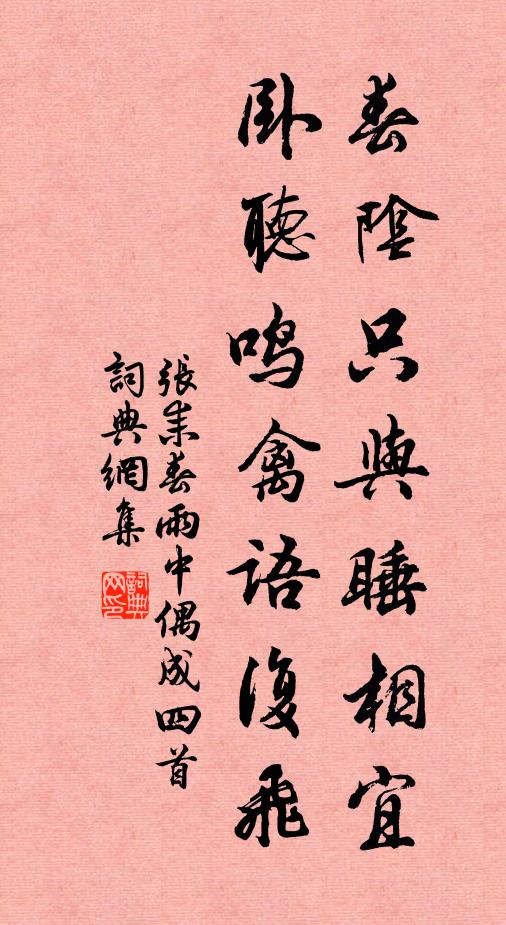 春陰只與睡相宜
臥聽鳴禽語復飛
張耒春雨中偶成四首
詞典網集
詞典网印